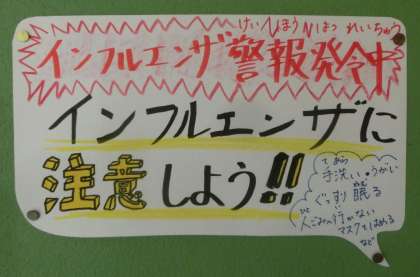 けいほうはつれいちゅう
インフルエンザ警報発令中
インフルエンザに
注意しよう!!
てあら
手洗い・うがい
ぐっすり眠る
ひと
人ごみへ行かない
マスクではめる
など